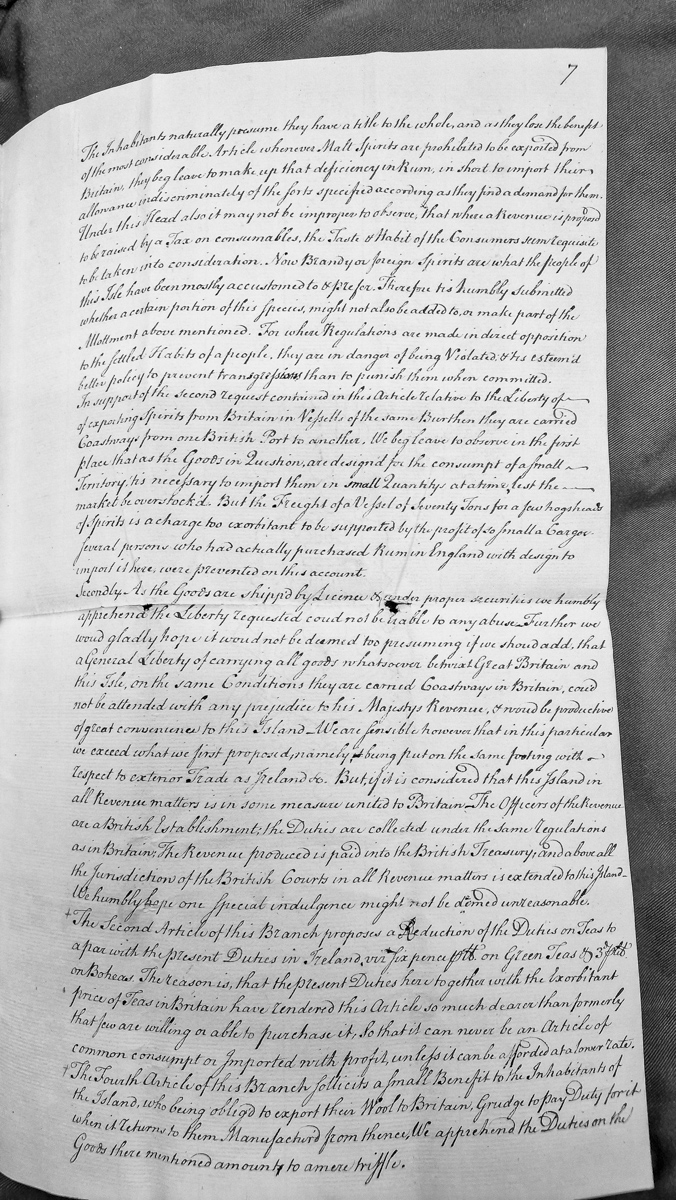 7
The Inhabitants naturally presume they have a title to the whole, and as they lose the benefit
of the most considerable Article whenever Malt Spirits are prohibited to be exported from
Britain, they beg leave to make up that deficiency in Rum, in short to import their
allowance indiscriminately of the sorts specified according as they find a demand for them.
Under this Head also it may not be improper to observe, that where a Revenue is propos'd
to be raised by a Tax on consumables, the Taste & Habit of the Consumers seem requisite
to be taken into consideration. Now Brandy or foreign Spirits are what the people of
this Isle have been mostly accustomed to & prefer. Therefore tis humbly submitted
whether a certain portion of this Species, might not also be added to, or make part of the
Allottment above mentioned. For where Regulations are made in direct opposition
to the settled Habits of a people, they are in danger of being Violated, & tis esteem'd
better policy to prevent transgressions than to punish them when committed.
In support of the second request contained in this Article relative to the Liberty of
of exporting Spirits from Britain in Vessells of the same Burthen they are carried
Coastways from one British Port to another, We beg leave to observe in the first
place that as the Goods in Question, are design'd for the consumpt of a small
Territory, tis necessary to import them in small Quantitys at a time, lest the
market be overstock'd. But the Freight of a Vessel of Seventy Tons for a few hogsheads
of Spirits is a charge too exorbitant to be supported by the profit of so small a Cargoe
several persons who had actually purchased Rum in England with design to
import it here, were prevented on this account.
Secondly. As the Goods are shipp'd by Licence & under proper securities we humbly
apprehend the Liberty requested coud not be liable to any abuse. Further we
woud gladly hope it woud not be deemed too presuming if we should add, that
a General Liberty of carrying all goods whatsoever betwixt Great Britain and
this Isle, on the same Conditions they are carried Coastways in Britain, coud
not be attended with any prejudice to his Majestys Revenue, & woud be productive
of great convenience to this Island. We are sensible however that in this particular
we exceed what we first proposed, namely being put on the same footing with
respect to exterior Trade as Ireland &c. But, if it is considered that this Island in
all Revenue matters is in some measure united to Britain. The Officers of the Revenue
are a British Establishment; the Duties are collected under the same regulations
as in Britain; The Revenue produced is paid into the British Treasury; and above all
the Jurisdiction of the British Courts in all Revenue matters is extended to this Island
We humbly hope one Special indulgence might not be deemed unreasonable.
+ The Second Article of this Branch proposes a Reduction of the Duties on Teas to
a par with the present Duties in Ireland, viz Sixpence on Green Teas & 3d
on Boheas. The reason is, that the present Duties here together with the Exorbitant
price of Teas in Britain have rendered this Article so much dearer than formerly
that few are willing or able to purchase it, So that it can never be an Article of
common consumpt or Imported with profit, unless it can be afforded at a lower rate.
+ The Fourth Article of this Branch sollicits a small Benefit to the Inhabitants of
the Island, who being oblig'd to export their Wool to Britain, Grudge to pay Duty for it
when it returns to them Manufactur'd from thence, We apprehend the Duties on the
Goods there mentioned amount to a mere triffle.